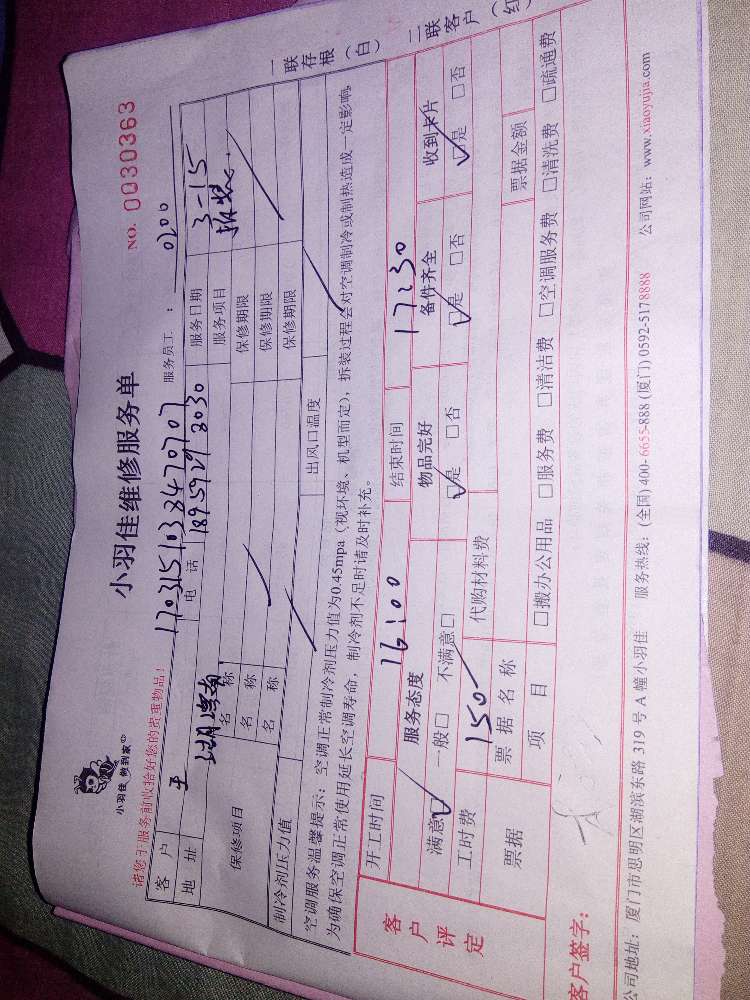 小羽佳 帮到家
小羽佳维修服务单
NO. 0030363
请您于服务前收拾好您的贵重物品！
1703151038470707
服务员工：0200
客户 王 电话 18959293030 服务日期 3-15
地址 服务项目 拆装
保修项目 名称 保修期限
名称 保修期限
名称 保修期限
制冷剂压力值 出风口温度
空调服务温馨提示：空调正常制冷剂压力值为0.45mpa（视环境、机型而定），拆装过程会对空调制冷或制热造成一定影响。
为确保空调正常使用延长空调寿命，制冷剂不足时请及时补充。
一联存根（白） 二联客户（红
客户评定
开工时间 16:00 结束时间 17:30
服务态度 物品完好 备件齐全 收到卡片
满意☑ 一般□ 不满意□ ☑是 □否 ☑是 □否 ☑是 □否
工时费 150 代购材料费
票据 票据名称 票据金额
项目 □搬办公用品 □服务费 □清洁费 □空调服务费 □清洗费 □疏通费
客户签字：
公司地址：厦门市思明区湖滨东路 319 号 A 幢小羽佳 服务热线：(全国) 400-6655-888 (厦门) 0592-5178888 公司网站：www.xiaoyujia.com